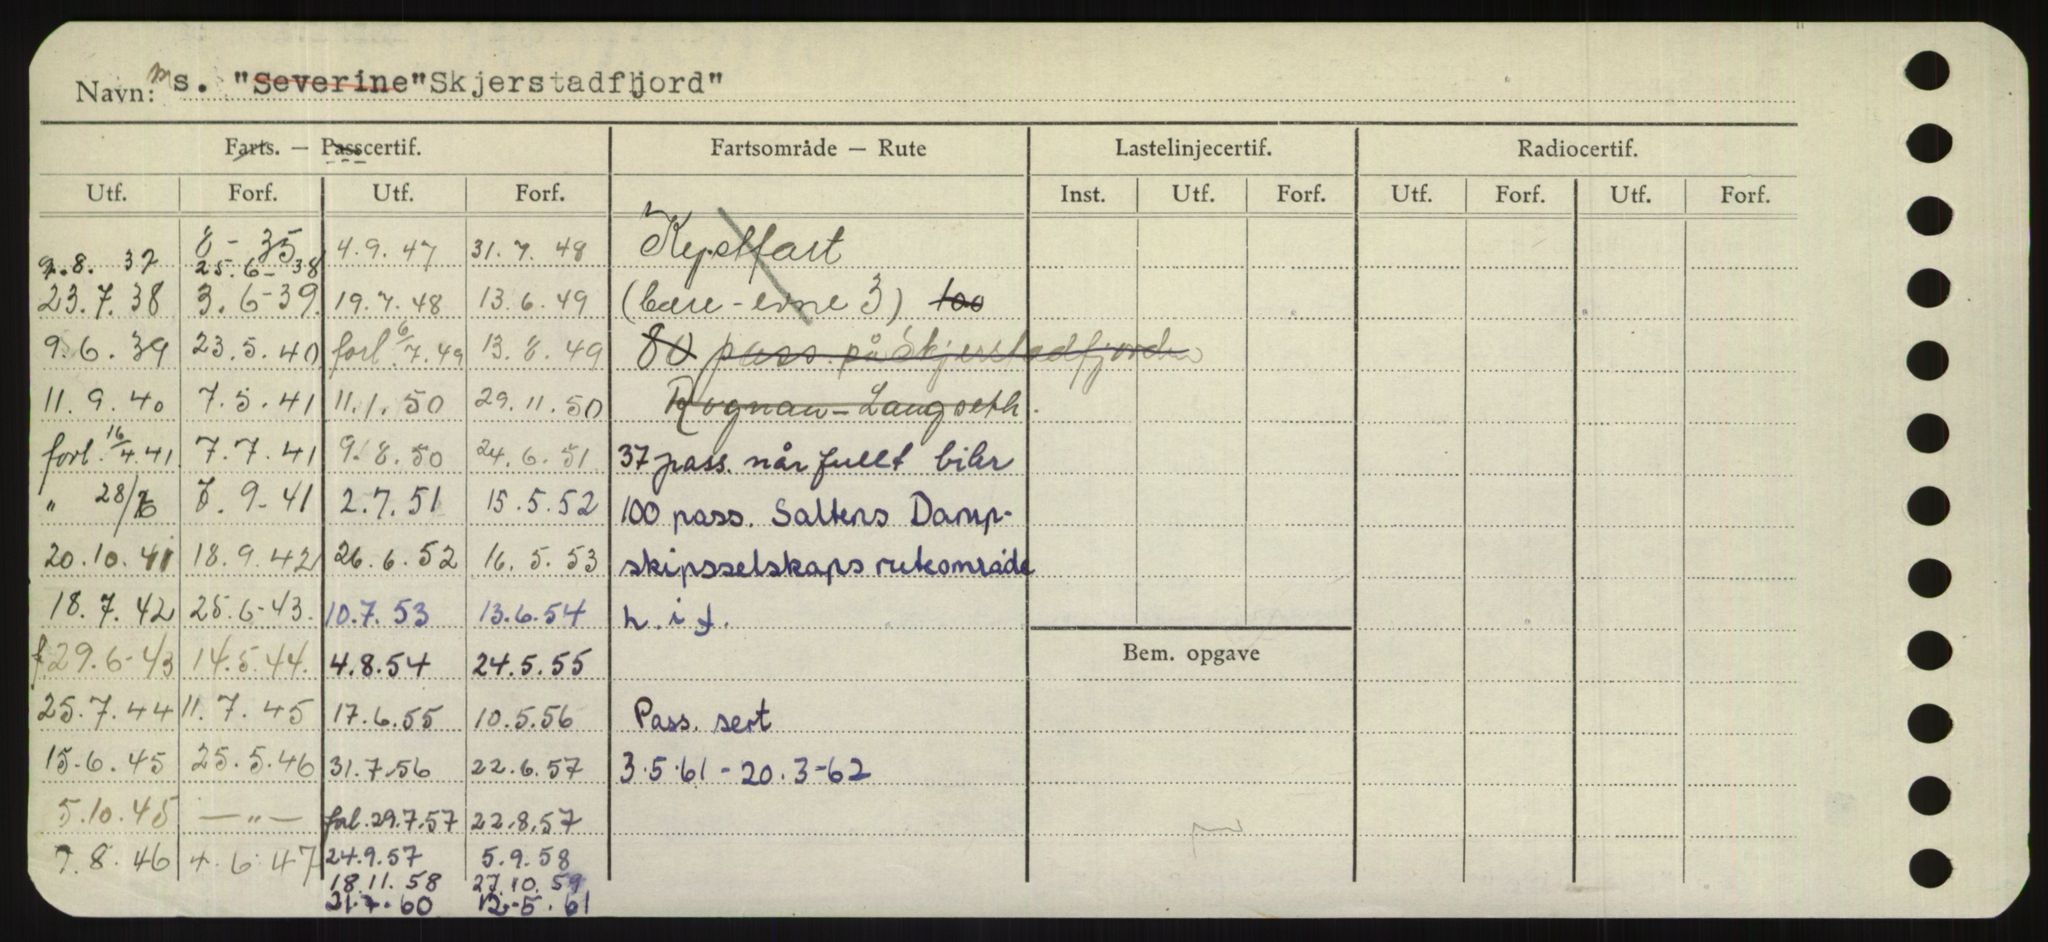 Navn: ms. "Severine" Skjerstadfjord"
Farts. — Passcertif. Fartsområde — Rute Lastelinjecertif. Radiocertif.
Utf. Forf. Utf. Forf. Inst. Utf. Forf. Utf. Forf. Utf. Forf.
8 - 35
.8. 37 25.6-38 4.9.47 31.7.48 Kystfart
23.7.38 3.6-39. 19.7.48 13.6.49 (bære-evne 3) 100
9.6.39 23.5.40 forl 6/7.49 13.8.49 80 pass. på Skjerstadfjorden
11.9.40 7.5.41 11.1.50 29.11.50 Rognan - Langseth.
forl. 16/4.41 7.7.41 9.8.50 24.6.51 37 pass. når fullt biler
" 28/6 7.9-41 2.7.51 15.5.52 100 pass. Saltens Damp-
20.10.41 18.9.42 26.6.52 16.5.53 skipsselskaps ruteområde
18.7.42 25.6-43. 10.7.53 13.6.54 h.i.f.
f. 29.6-43 14.5.44. 4.8.54 24.5.55 Bem. opgave
25.7.44 11.7.45 17.6.55 10.5.56 Pass. sert
15.6.45 25.5.46 31.7.56 22.6.57 3.5.61 - 20.3-62
5.10.45 — " — forl. 29.7.57 22.8.57
7.8.46 4.6.47 24.9.57 5.9.58
18.11.58 27.10.59
21.7.60 12-5.61